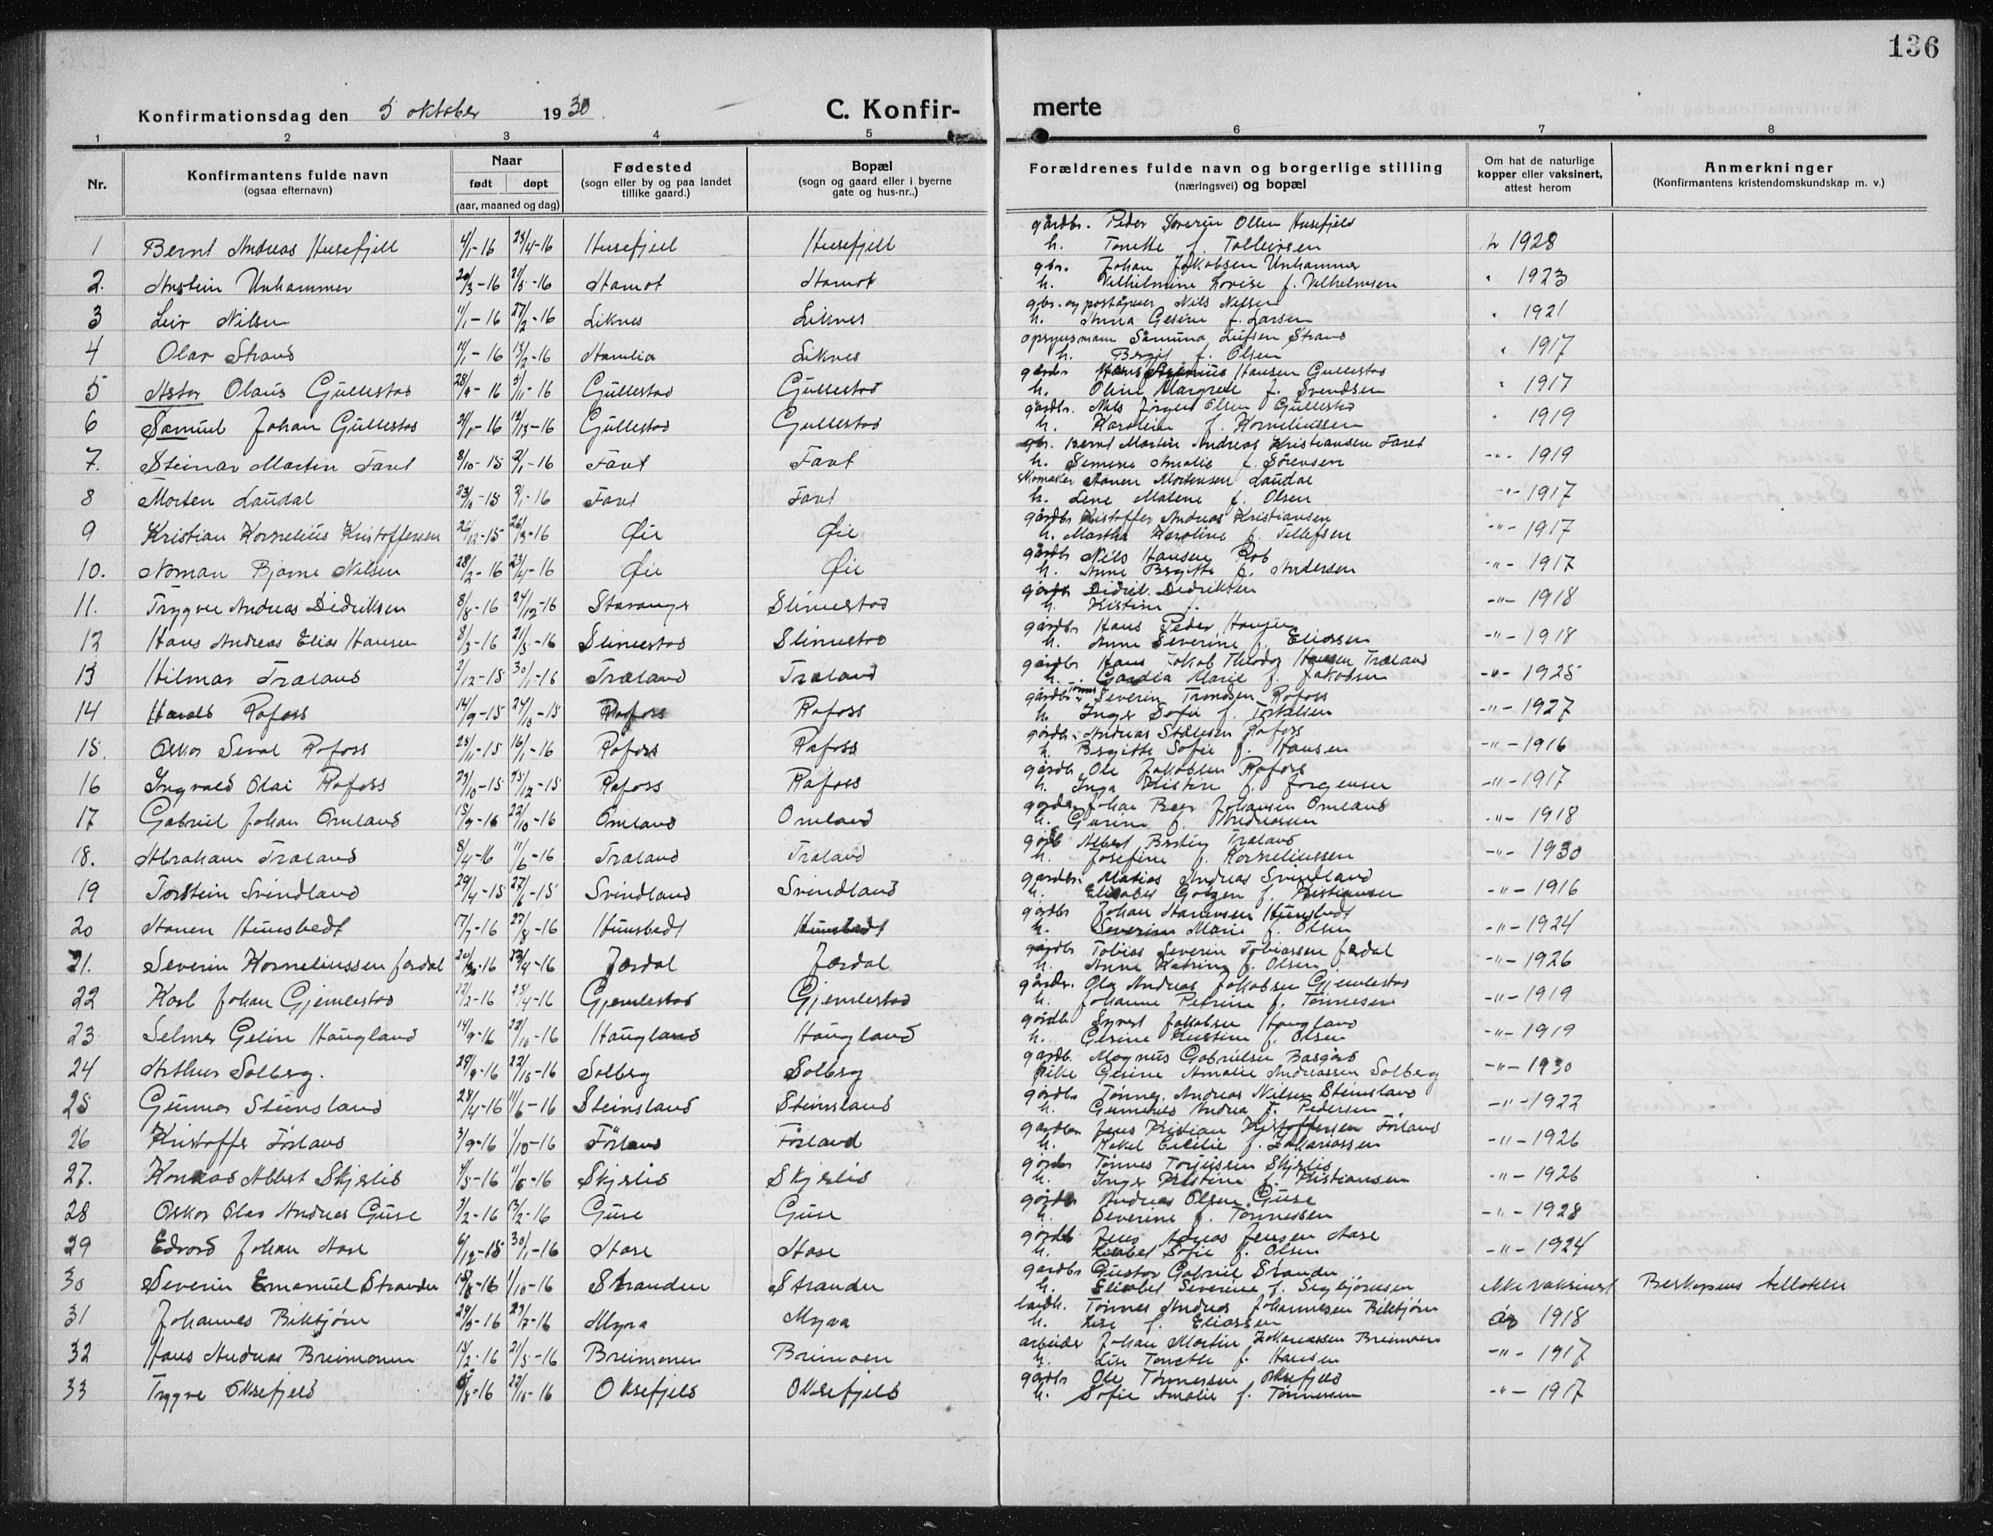 136
Konfirmationsdag den 5 oktober 1930. C. Konfirmerte
1 2 3 4 5 6 7 8
Nr. Konfirmantens fulde navn (ogsaa efternavn) Naar født døpt (aar, maaned og dag) Fødested (sogn eller by og paa landet tillike gaard.) Bopæl (sogn og gaard eller i byerne gate og hus-nr..) Forældrenes fulde navn og borgerlige stilling (næringsvei) og bopæl Om hat de naturlige kopper eller vaksinert, attest herom Anmerkninger (Konfirmantens kristendomskundskap m. v.)
1 Bernt Andreas Husefjell 4/1-16 28/4-16 Husefjell Husefjell gårdbr. Peder Severin Olsen Husefjeld h. Tonette f. Tollevsen 1928
2. Anstein Unhammer 20/3-16 21/5-16 Aamot Aamot gbr. Johan Jakobsen Unhammer h. Vilhelmine Lovise f. Vilhelmsen " 1923
3 Leiv Nilsen 11/1-16 27/2-16 Liknes Liknes gbr. og poståpner Nils Nilsen h. Anna Gesine f. Larsen " 1921
4 Olav Strand 11/1-16 13/2-16 Liknes opsynsmann Samund Strand h. Bergit f. Olsen " 1917
5 Astor Olaus Gullestad 16 16 Gullestad Gullestad gårdbr Hansen Gullestad h. Oline Margrete f. Svendsen " 1917
6 Samuel Johan Gullestad 16 16 Gullestad Gullestad gårdbr. Nils Jørgen Olsen Gullestad h. Karoline f. Korneliussen " 1919
7. Steinar Martin Faret 8/10-15 2/1-16 Faret Faret gbr. Bernt Martin Andreas Kristiansen Faret h. Amalie f. Sørensen -"- 1919
8 Morten Laudal 15 2/1-16 Faret Faret skomaker Aanen Mortensen Laudal h. Lene Malene f. Olsen -"- 1917
9 Kristian Kornelius Kristoffersen 26/12-15 26/3-16 Øie Øie gårdbr Kristoffer Andreas Kristiansen h. Martha Karoline f. Tellefsen -"- 1917
10. Norman Bjarne Nilsen 28/2-16 23/4-16 Øie Øie gårdbr Nils Hansen Rob h. Anne Bergitte f. Andersen -"- 1917
11. Trygve Andreas Didriksen 8/8-16 24/12-16 Stavanger Slimestad gårdbr Didrik Didriksen h. Kistine f. -"- 1918
12 Hans Andreas Elias Hansen 8/3-16 21/5-16 Slimestad Slimestad gårdbr Hans Peder Hansen h. Anne Severine f. Eliassen -"- 1918
13 Hilmar Træland 2/12-15 30/1-16 Træland Træland gårdbr Hans Jakob Theodor Hansen Træland h. Marie f. Jakobsen -"- 1925
14 Harald Rafoss 14/9-15 24/10-15 Rafoss Rafoss gårdbr Severin Rafoss h. Inger Sofie f. -"- 1927
15. Oskar Seval Rafoss 25/11-15 16/1-16 Rafoss Rafoss gårdbr. Andreas Rafoss h. Bergitte Sofie f. Hansen -"- 1916
16 Ingvald Olai Rafoss 15 15 Rafoss Rafoss gårdb. Ole Jakobsen Rafoss h. Inga Kristine f. Jørgensen -"- 1917
17 Gabriel Johan Omland 15/9-16 22/10-16 Omland Omland Johan Johansen Omland h. Gurine f. Andreassen -"- 1918
18. Abraham Træland 8/4-16 11/6-16 Træland Træland Albert Træland h. Josefine f. Korneliussen -"- 1930
19 Torstein Svindland 29/4-15 27/6-15 Svindland Svindland gårdbr. Matias Andreas Svindland h. f. Kristiansen -"- 1916
20 Aanen Hunsbedt 17/7-16 27/8-16 Hunsbedt Hunsbedt gårdbr Johan Hunsbedt h. Severine Marie f. Olsen -"- 1924
21. Severin Korneliussen Jærdal 16 23/4-16 Jærdal Jærdal gårdbr Tobias Severin Tobiassen Jærdal h. Anne Katrine f. Olsen -"- 1926
22 Karl Johan Gjemlestad 16 16 Gjemlestad Gjemlestad gårdbr. Ole Andreas Jakobsen Gjemlestad h. Johanne Petrine f. Tønnesen -"- 1919
23 Selmer Gelin Haugland 14/9-16 16 Haugland Haugland gårdb. Syvert Jakobsen Haugland h. Gesine Kristine f. Olsen -"- 1919
24 Arthur Solberg. 16 22/10-16 Solberg Solberg gårdb. Magnus Gabrielsen pike Gesine Amalie Andreassen Solberg -"- 1930
25 Gunnar Steinsland 28/4-16 11/6-16 Steinsland Steinsland gårdbr Tønnes Andreas Nilsen Steinsland h. Andrea f. Pedersen -"- 1922
26 Kristoffer Førland 3/9-16 1/10-16 Førland Førland gårdbr Jens Kristian Kristoffersen Førland h. Rakel Cecilie f. Zakariassen -"- 1926
27. Konrad Albert Skjerlid 16 16 Skjerlid Skjerlid gårdbr Tønnes Torjussen Skjerlid h. Inger Kristine f. Kristiansen -"- 1926
28 Oskar Olav Andreas Guse 3/2-16 13/2-16 Guse Guse gårdbr Andreas Olsen Guse h. Severine f. Tønnessen -"- 1928
29 Edvard Johan Aase 6/12-15 30/1-16 Aase Aase gårdb Jens Andreas Jensen Aase h. Sofie f. Olsen -"- 1924
30 Severin Emanuel Stranden 16 1/10-16 Stranden Stranden gårdbr Gustav Gabriel Stranden h. Elisabet Severine f. Sigbjørnsen ikke vaksinert Beskopens tillatelse
31 Johannes Biktjørn 16 16 Myra Myra Tønnes Andreas Johannesen Biktjørn h. Lise f. Eliassen år 1918
32 Hans Andreas Breimoen 15/2-16 21/5-16 Breimoen Breimoen arbeider Johan Martin Zakariassen Breimoen h. Lise Tonette f. Hansen -"- 1917
33 Trygve Oksefjeld 16 22/10-16 Oksefjeld Oksefjeld gårdbr Ole Tønnessen Oksefjeld h. Sofie Amalie f. Tønnesen -"- 1917